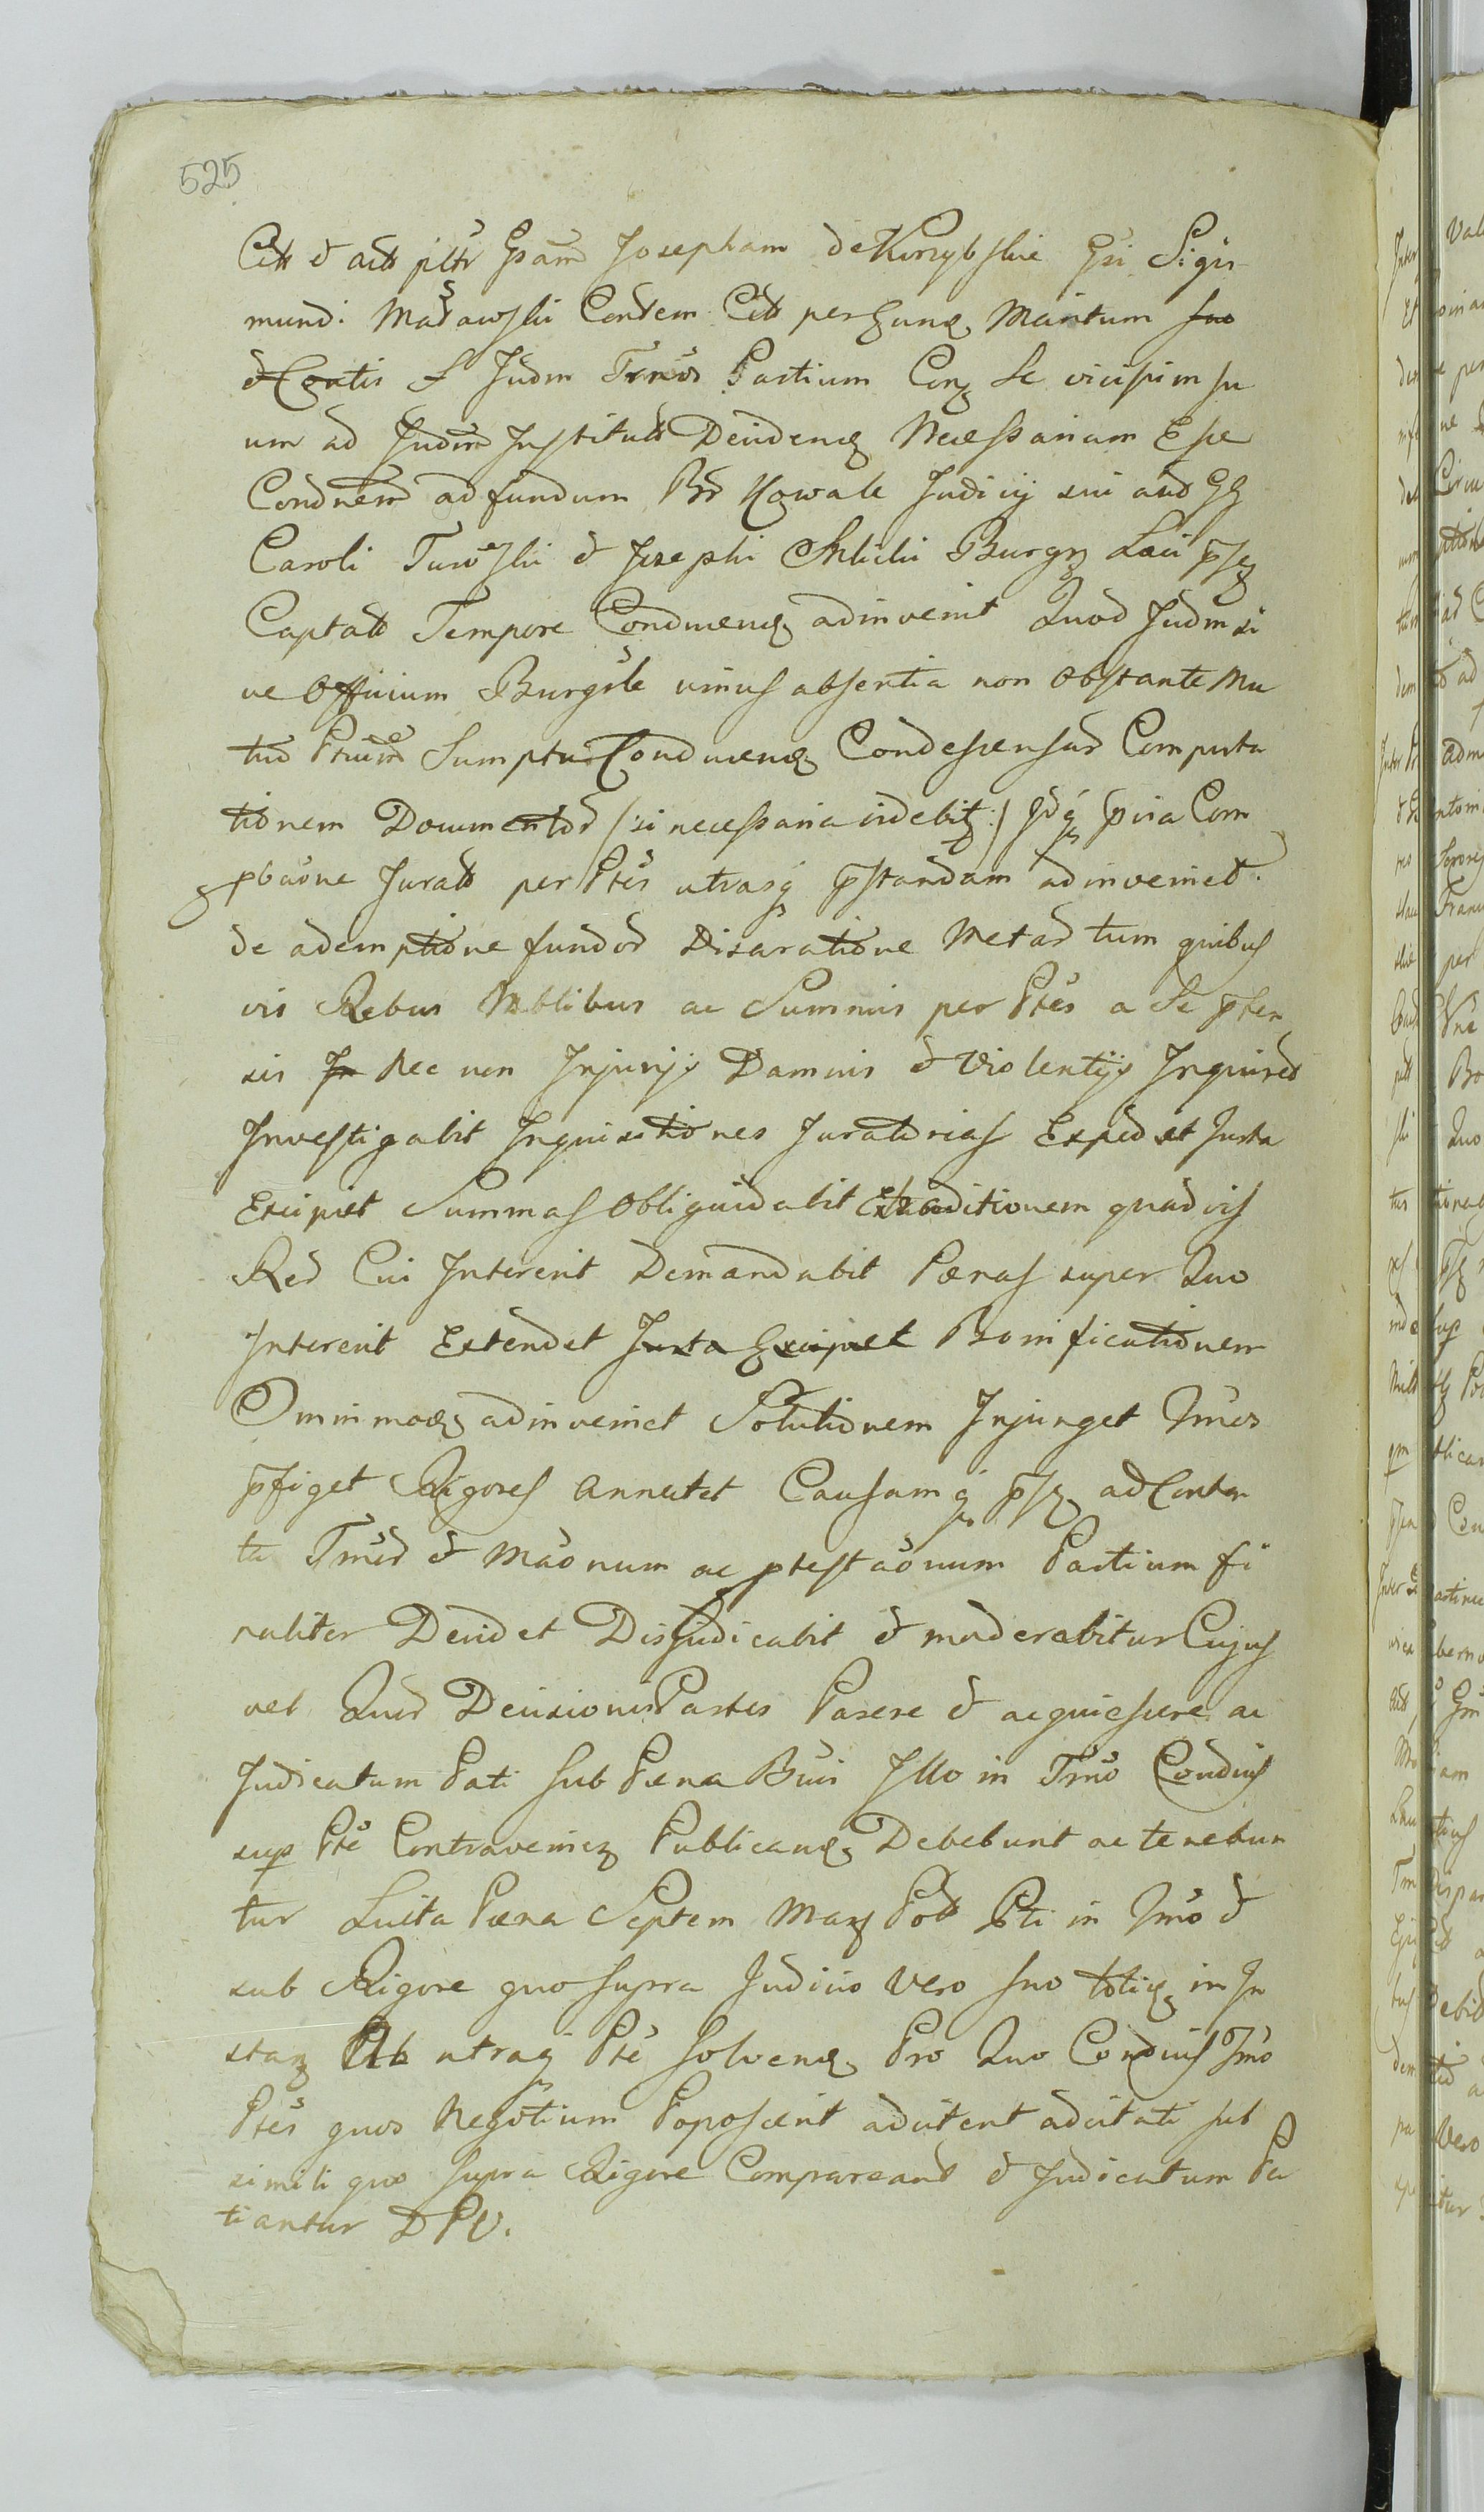 525
Citt & actt Josepham de Korzybskie Gsi Sigis
mundi Madawski Condem Citt per Eunq Maritum suo
& Contis S Judm Partium Conz Se vicissim su
um ad Judm Institutt Decidenq Necessariam Esse
Condnem ad fundum Bd Kowale Judicij sui and GG
Caroli Turoski & Josephi Burgz pseg
Captatt Tempore Conducenq adinvenit Quod Judm si
ue Officium Burgsle unius absentia non Obstante Mu
tuo Ptium Sumptu Conducenq Condescensad Computa
tionem Documentor /:si necessaria videbitz:/ Com
pbaone Juratt per Ptes utrasq pstandam adinveniet.
de ademptione fundor Disaratione Metar tum quibus
vis Rebus Mblibus ac Summis per Ptes a Se pten
sis In Nec non Injurijs Damnis & Violentijs Inquiret
Investigabit Inquisitiones Juratorias Exped et Juxta
Excipiet Summas Obliquidabit Extraditionem quarvis
Rer Cui Intererit Demandabit Pœnas super Quo
Intererit Extendet Juxta Excipiet Bonificationem
Omnimodz adinveniet Solutionem Injunget Tmos
pfiget Rigores annectet Causamq pseq ad Conten
ta Tmor & Maonum ac ptestaonum Partium fi
naliter Decidet Disjudicabit & moderabitur Cujus
vel Quor Decisionis Partes Parere & acquiescere ac
Judicatum Pati sub Pœna Bnis Illo in Tmo Condius
sup Pte Contraveniez Publicanq Debebunt ac tenebun
tur Luita Pœna Septem Marz Poll Pti in Tmo &
sub Rigore quo supra Judicio Vero suo totiq in In
staz Ab utraq Pte solvenq Pro Quo Condius Tmo
Ptes quos Negotium Poposcerit adcitent adcitati sub
simili quo supra Rigore Compareant & Judicatum Pa
tiantur D P V.